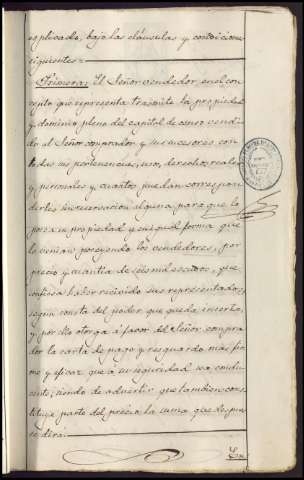 esplicado, bajo las cláusulas y condiciones
siguientes=
Primera: El Señor vendedor, en el con
cepto que representa trasmite la propiedad
y dominio pleno del capital de censo vendi
do al Señor comprador y sus accesores con
todas sus pertenencias, uso, derechos reales
y personales y cuantos puedan correspon
derles sin reservacion alguna para que lo
posea en propiedad y en igual forma que
lo venian poseyendo los vendedores, por
precio y cuantia de seis mil escudos, que
confiesa haber recivido sus representados,
segun consta del poder que queda inserto,
y por ello otorga á favor del Señor compra
dor la carta de pago y resguardo mas fir
me y eficaz que á su seguridad sea condu
cente; siendo de advertir que tambien cons
tituye parte del precio la suma que despues
se dirá.